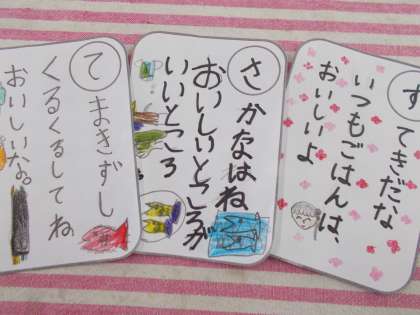 すてきだな
いつもごはんは、
おいしいよ
さかなはね
おいしいところが
いいところ
てまきずし
くるくるしてね
おいしいな。